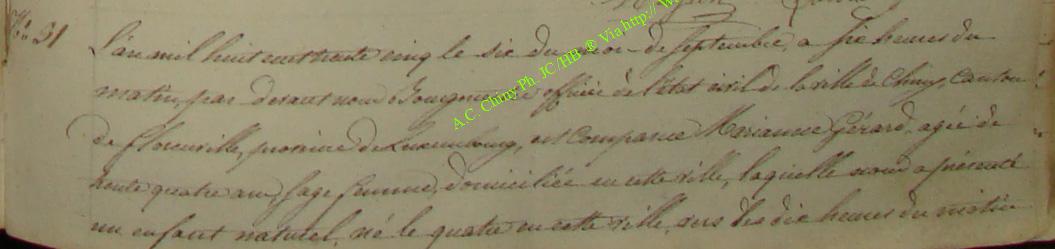 No 31
L'an mil huit cent trente cinq le six du mois de Septembre, a heures du
matin, par devant nous Bourgmestre officier de l'état civil de la ville de Chiny, Canton
de florenville, province de Luxembourg, est comparue Marianne Gérard, agée de
trente quatre ans, sage femme, domiciliée en cette ville, laquelle nous a présenté
un enfant naturel, né le quatre en cette ville, vers les dix heures du matin
A.C. Chiny Ph. JC/HB ® Via http://